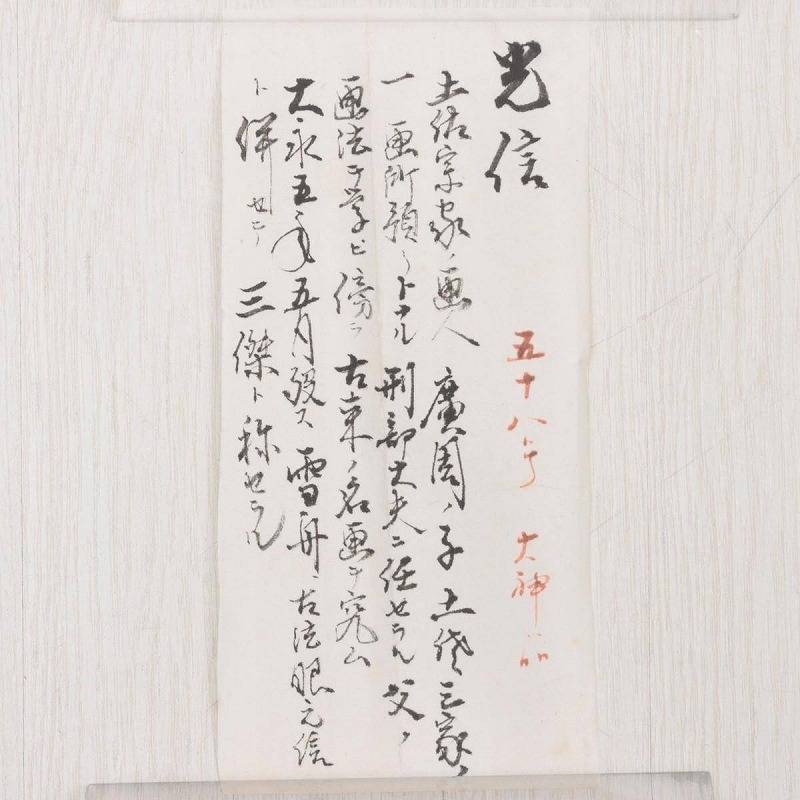 光信
五十八才 大神品
土佐宗家ノ画人 廣周ノ子 土佐三家ノ
一 画所預リトナル 刑部大夫ニ任セラル 父ノ
画法ヲ学ビ 傍ラ 古来ノ名画ヲ究ム
大永五年五月殁ス 雪舟、古法眼元信
ト併セテ 三傑ト称セラル